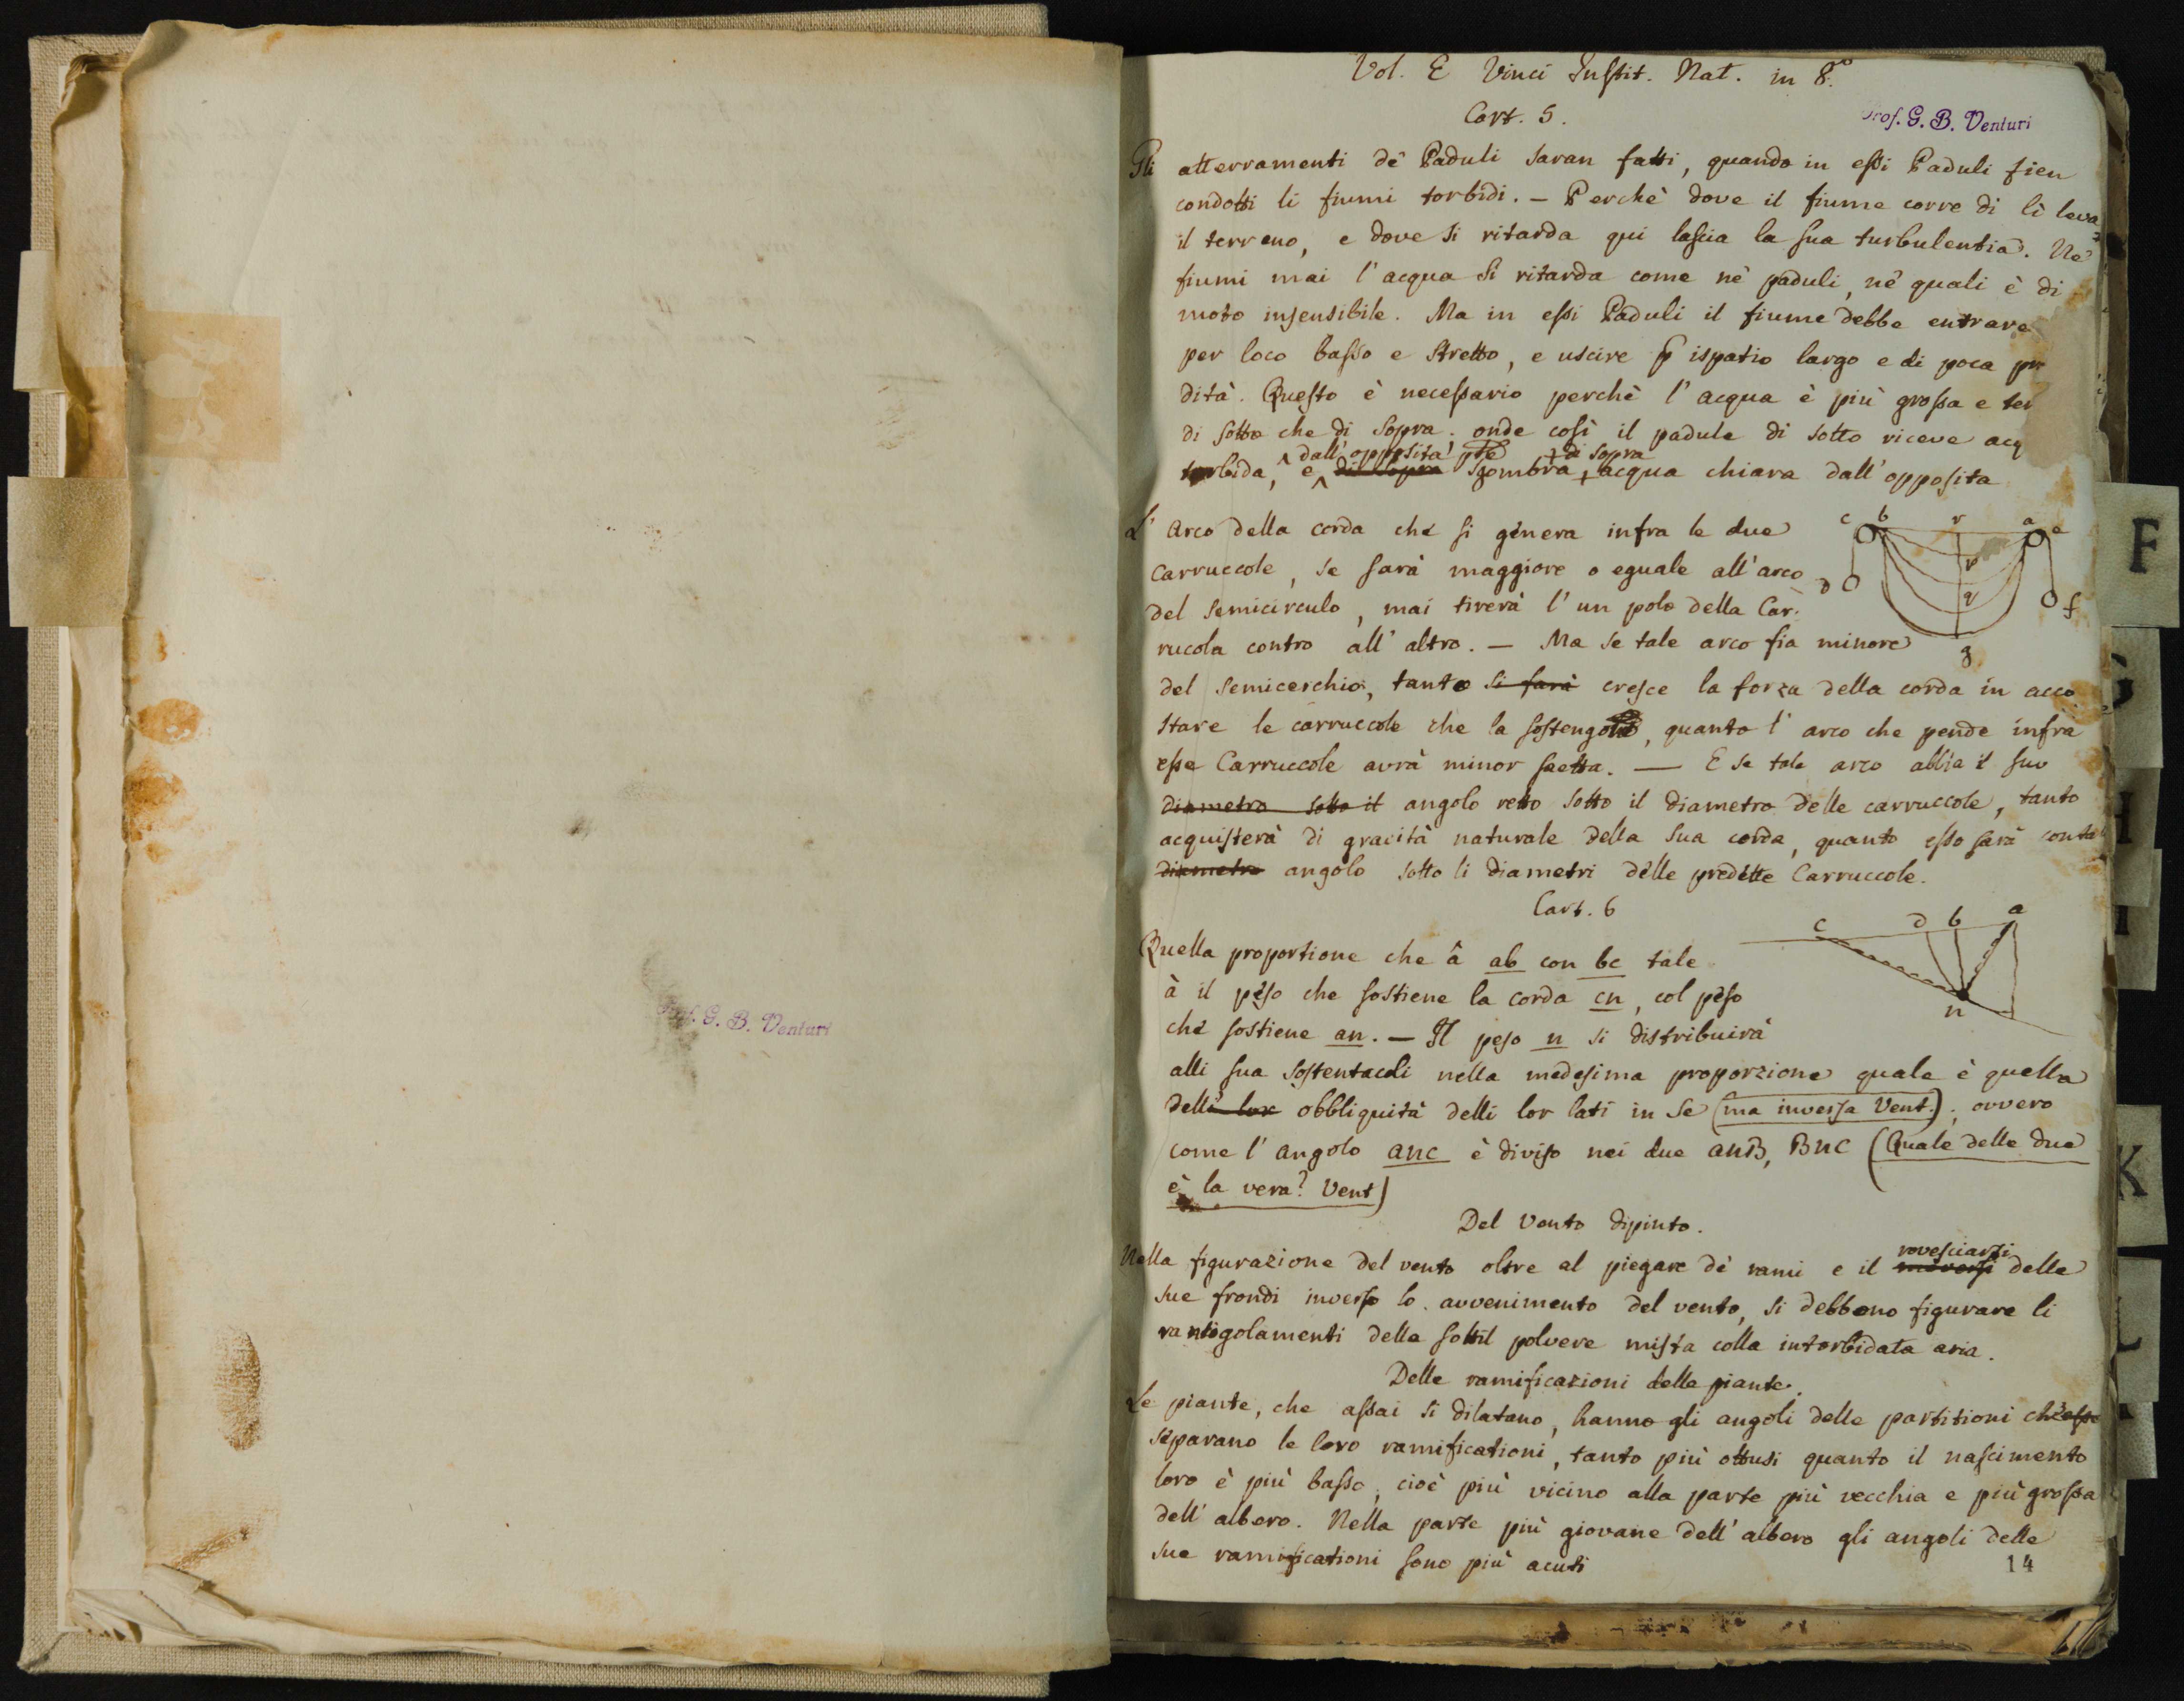 Prof. G. B. Venturi
Vol. E Vinci Instit. Nat. in 8.º
Cart. 5.
Prof. G. B. Venturi
Gli atterramenti de' Paduli saran fatti, quando in essi Paduli fien
condotti li fiumi torbidi. – Perchè dove il fiume corre di lì leva
il terreno, e dove si ritarda qui lascia la sua turbulentia. Ne'
fiumi mai l'acqua si ritarda come ne' paduli, ne' quali è di
moto insensibile. Ma in essi Paduli il fiume debbe entrare
per loco basso e stretto, e uscire p ispatio largo e di poca pr
dità. Questo è necessario perchè l'acqua è più grossa e ter
di sotto che di sopra. onde così il padule di sotto riceve acq
dall'opposita pte di sopra
torbida, e di sopra sgombra + acqua chiara dall'opposita
L'arco della corda che si genera infra le due
c b r a e
Carruccole, se sarà maggiore o eguale all'arco
D
del semicirculo, mai tirerà l'un polo della Car-
q f
rucola contro all'altro. – Ma se tale arco fia minore
g
del semicerchio, tanto si farà cresce la forza della corda in acco
stare le carruccole che la sostengono, quanto l'arco che pende infra
esse Carruccole avrà minor saetta. — E se tale arco abbia il suo
diametro sotto il angolo retto sotto il diametro delle carruccole, tanto
acquisterà di gravità naturale della sua corda, quanto esso sarà conta
diametro angolo sotto li diametri delle predette Carruccole.
Cart. 6
c d b a
Quella proportione che â ab con bc tale
à il peso che sostiene la corda cn, col peso
n
che sostiene an. – Il peso n si distribuirà
alli sua sostentacoli nella medesima proporzione quale è quella
delli lor obbliquità delli lor lati in se (ma inversa Vent.). ovvero
come l'angolo anc è diviso nei due anB, Bnc (Quale delle due
è la vera? Vent)
Del Vento dipinto.
rovesciarsi
Nella figurazione del vento oltre al piegare de' rami e il delle
sue frondi inverso lo avvenimento del vento, si debbono figurare li
della sottil polvere mista colla intorbidata aria.
Delle ramificazioni delle piante.
Le piante, che assai si dilatano, hanno gli angoli delle partitioni che
separano le loro ramificationi, tanto più ottusi quanto il nascimento
loro è più basso, cioè più vicino alla parte più vecchia e più grossa
dell'albero. Nella parte più giovane dell'albero gli angoli delle
sue ramificationi sono più acuti
14
F
K